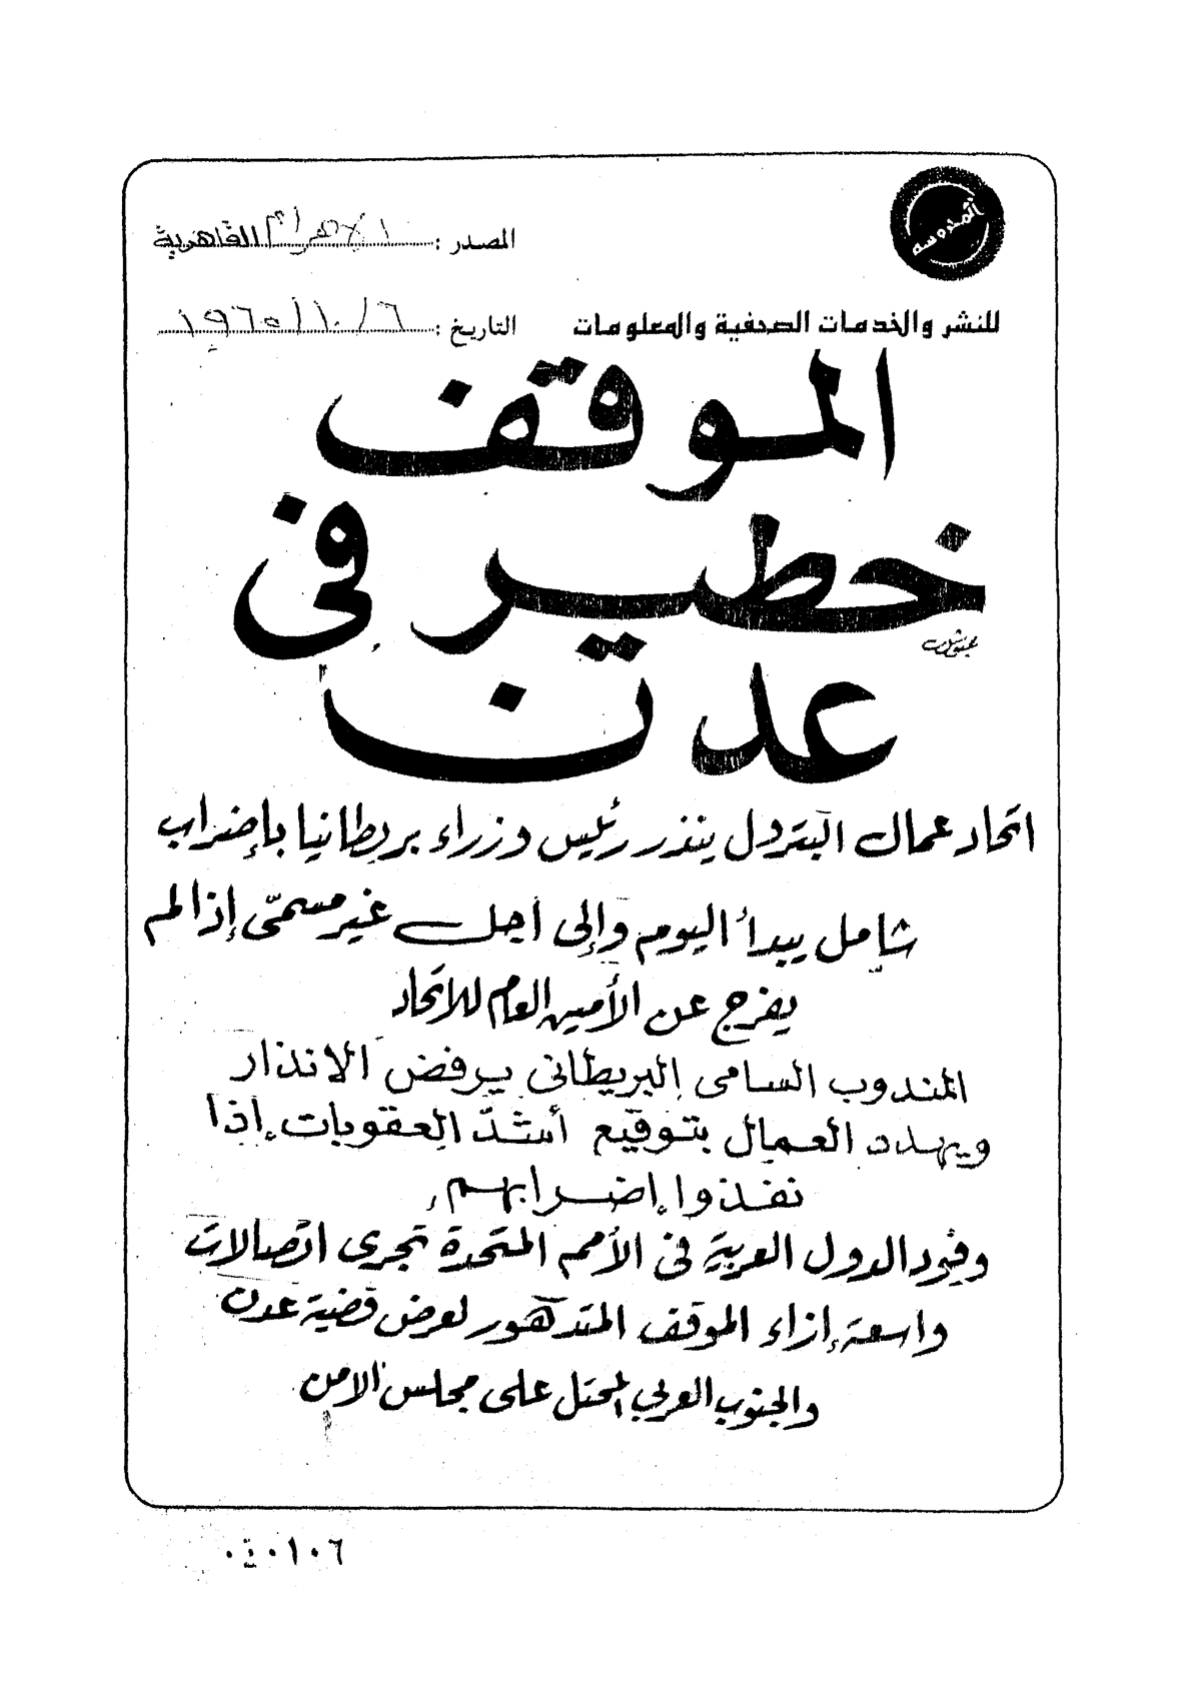 المدروسه
المصدر : الاهرام القاهرية
للنشر والخدمات الصحفية والمعلومات
التاريخ : ٦ / ١٠ / ١٩٦٥
الموقف
خطير فى
عدن
اتحاد عمال البترول ينذر رئيس وزراء بريطانيا بإضراب
شامل يبدأ اليوم وإلى أجل غير مسمّى إذا لم
يفرج عن الأمين العام للاتحاد
المندوب السامى البريطانى يرفض الانذار
ويهدد العمال بتوقيع أشدّ العقوبات إذا
نفذوا إضرابهم
وفود الدول العربية فى الأمم المتحدة تجرى اتصالات
واسعة إزاء الموقف المتدهور لعرض قضية عدن
والجنوب العربي المحتل على مجلس الامن
٠٤٠١٠٦